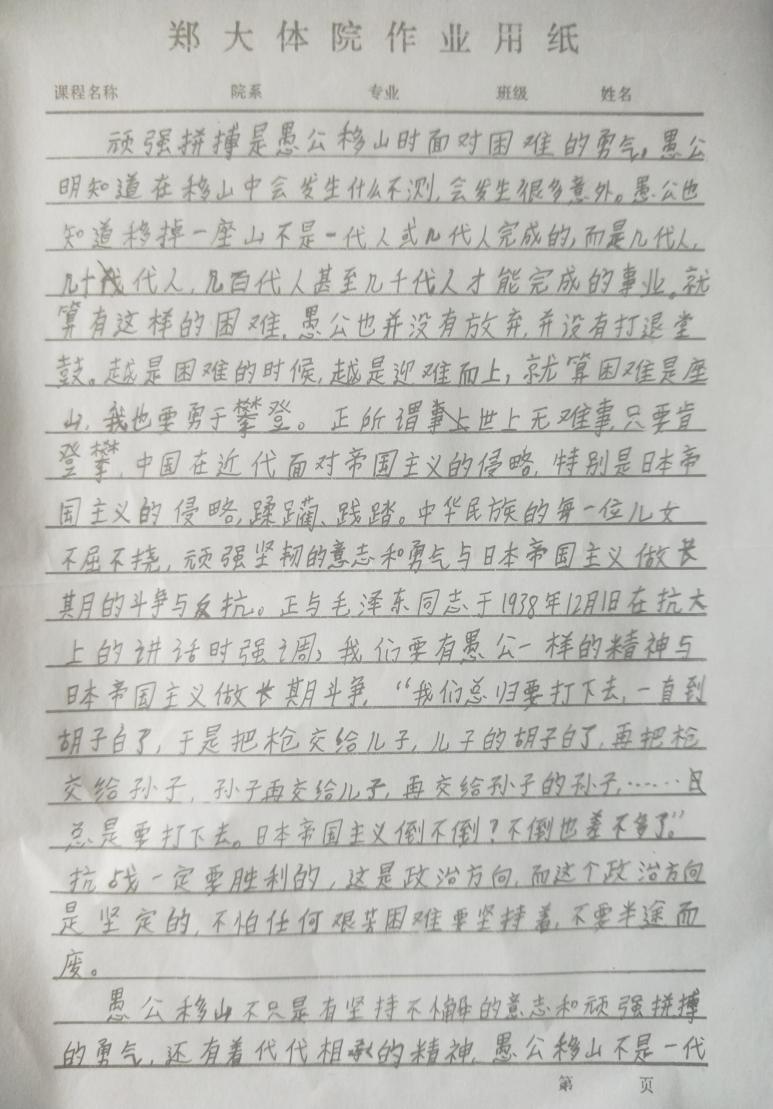 郑大体院作业用纸
课程名称 院系 专业 班级 姓名
顽强拼搏是愚公移山时面对困难的勇气。愚公
明知道在移山中会发生什么不测,会发生很多意外。愚公也
知道移掉一座山不是一代人或几代人完成的,而是几代人,
几十代人,几百代人甚至几千代人才能完成的事业。就
算有这样的困难,愚公也并没有放弃,并没有打退堂
鼓。越是困难的时候,越是迎难而上,就算困难是座
山,我也要勇于攀登。正所谓世上无难事,只要肯
登攀,中国在近代面对帝国主义的侵略,特别是日本帝
国主义的侵略,蹂躏、践踏。中华民族的每一位儿女
不屈不挠,顽强坚韧的意志和勇气与日本帝国主义做长
期的斗争与反抗。正与毛泽东同志于1938年12月1日在抗大
上的讲话时强调,我们要有愚公一样的精神与
日本帝国主义做长期斗争,“我们总归要打下去,一直到
胡子白了,于是把枪交给儿子,儿子的胡子白了,再把枪
交给孙子,孙子再交给儿子,再交给孙子的孙子,……日
总是要打下去。日本帝国主义倒不倒?不倒也差不多了。”
抗战一定要胜利的,这是政治方向,而这个政治方向
是坚定的,不怕任何艰苦困难要坚持着,不要半途而
废。
愚公移山不只是有坚持不懈的意志和顽强拼搏
的勇气,还有着代代相承的精神,愚公移山不是一代
第 页